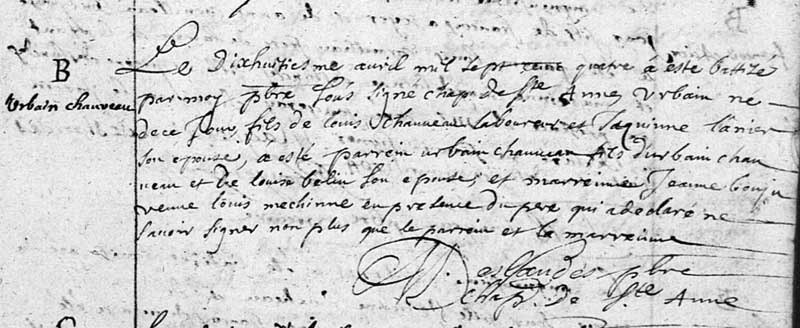 B
Urbain chauveau
Le Dixhuitiesme avril mil sept cent quatre a esté battizé
par moy pbre sous signé chap. de Ste Anne, Urbain ne
de ce jour, fils de louis chauveau laboureur et Jaquinne lanier
son epouse, a esté parrein urbain chauveau fils durbain chau
veau et de louise belin son epouse, et marreinne Jeanne
veuve louis mechinne en presence du pere qui a declaré ne
savoir signer non plus que le parrein et la marreinne
Deslandes pbre
chap. de Ste Anne